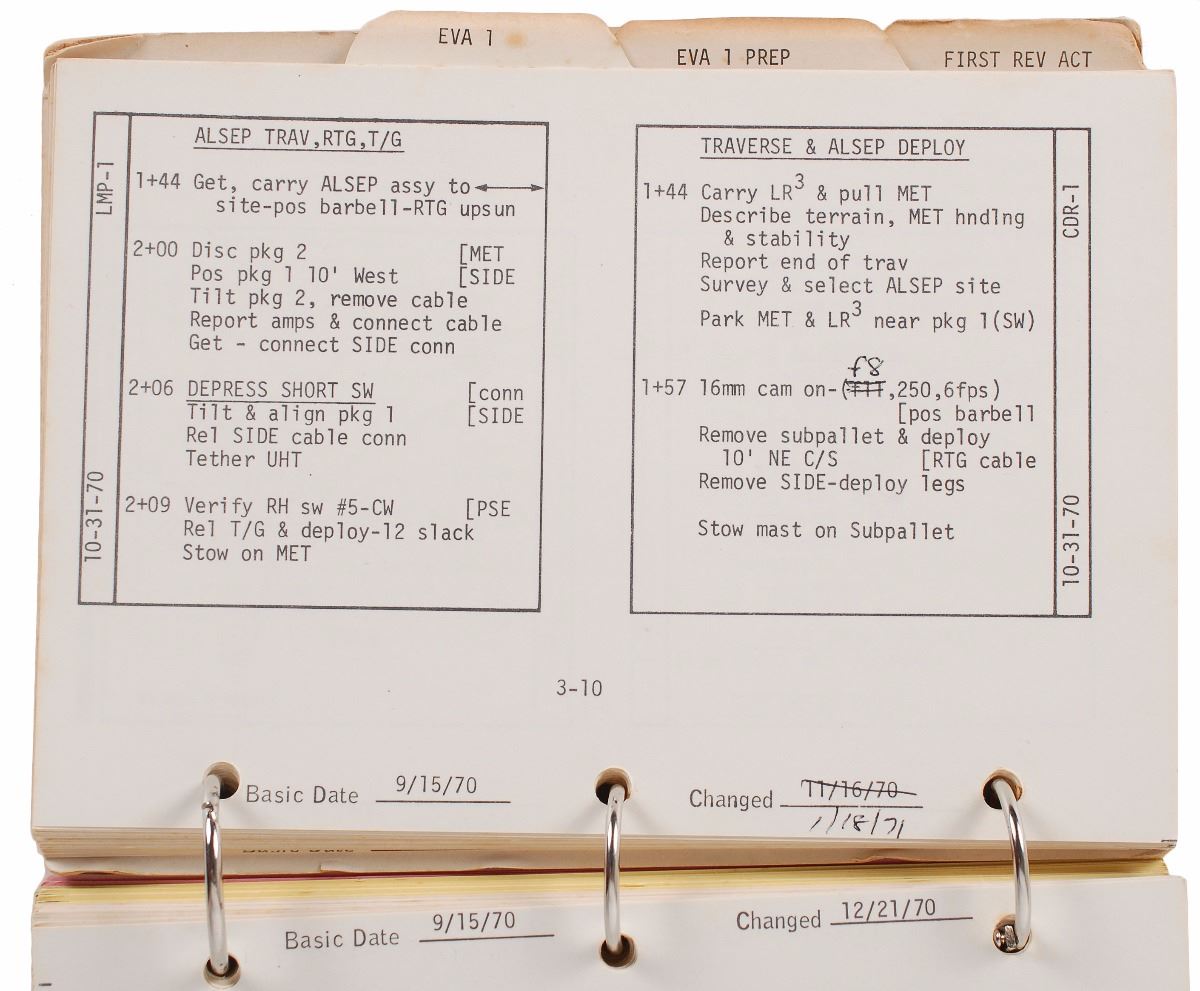 EVA 1
EVA 1 PREP
FIRST REV ACT
LMP-1
10-31-70
ALSEP TRAV,RTG,T/G
1+44 Get, carry ALSEP assy to
site-pos barbell-RTG upsun
2+00 Disc pkg 2 [MET
Pos pkg 1 10' West [SIDE
Tilt pkg 2, remove cable
Report amps & connect cable
Get - connect SIDE conn
2+06 DEPRESS SHORT SW [conn
Tilt & align pkg 1 [SIDE
Rel SIDE cable conn
Tether UHT
2+09 Verify RH sw #5-CW [PSE
Rel T/G & deploy-12 slack
Stow on MET
TRAVERSE & ALSEP DEPLOY
1+44 Carry LR3 & pull MET
Describe terrain, MET hndlng
& stability
Report end of trav
Survey & select ALSEP site
Park MET & LR3 near pkg 1(SW)
f8
1+57 16mm cam on-(f11,250,6fps)
[pos barbell
Remove subpallet & deploy
10' NE C/S [RTG cable
Remove SIDE-deploy legs
Stow mast on Subpallet
CDR-1
10-31-70
3-10
Basic Date 9/15/70 Changed 11/16/70
1/18/71
Basic Date
Basic Date 9/15/70 Changed 12/21/70